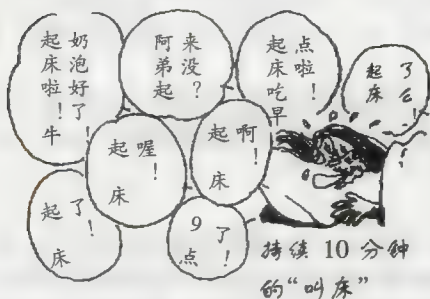 起床啦！牛
奶泡好了！
阿弟起
来没？
起床吃早
点啦！
起床
了么！
起床
喔！
起床
啊！
起床
了！
9点
了！
持续 10 分钟
的“叫床”